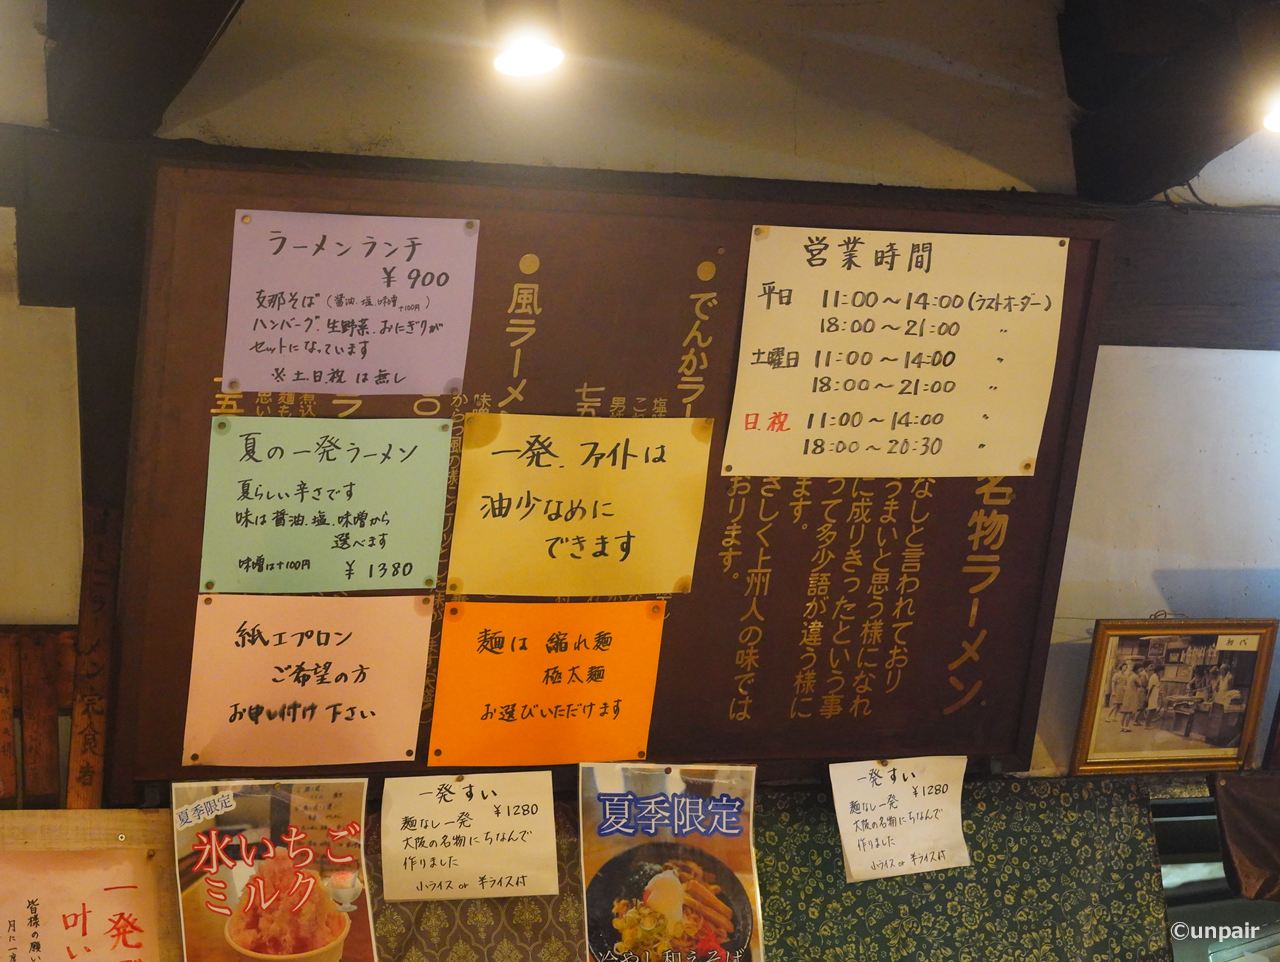 ラーメンランチ
¥900
支那そば(醤油.塩.味噌+100円)
ハンバーグ.生野菜.おにぎりが
セットになっています
※土.日.祝は無し
夏の一発ラーメン
夏らしい辛さです
味は醤油.塩.味噌から
選べます
味噌は+100円 ¥1380
紙エプロン
ご希望の方
お申し付け下さい
一発.ファイトは
油少なめに
できます
麺は縮れ麺
極太麺
お選びいただけます
営業時間
平日 11:00〜14:00(ラストオーダー)
18:00〜21:00 〃
土曜日 11:00〜14:00 〃
18:00〜21:00 〃
日.祝 11:00〜14:00 〃
18:00〜20:30 〃
名物ラーメン
なしと言われており
うまいと思う様になれ
に成りきったという事
って多少語が違う様に
ます。
さしく上州人の味では
おります。
●でんかラー
●風ラーメン
夏季限定
氷いちご
ミルク
一発すい
¥1280
麺なし一発
大阪の名物にちなんで
作りました
小ライス or 半ライス付
夏季限定
冷やし和えそば
一発すい
¥1280
麺なし一発
大阪の名物にちなんで
作りました
小ライス or 半ライス付
一発
叶い
皆様の願い
月に一
初代
©unpair